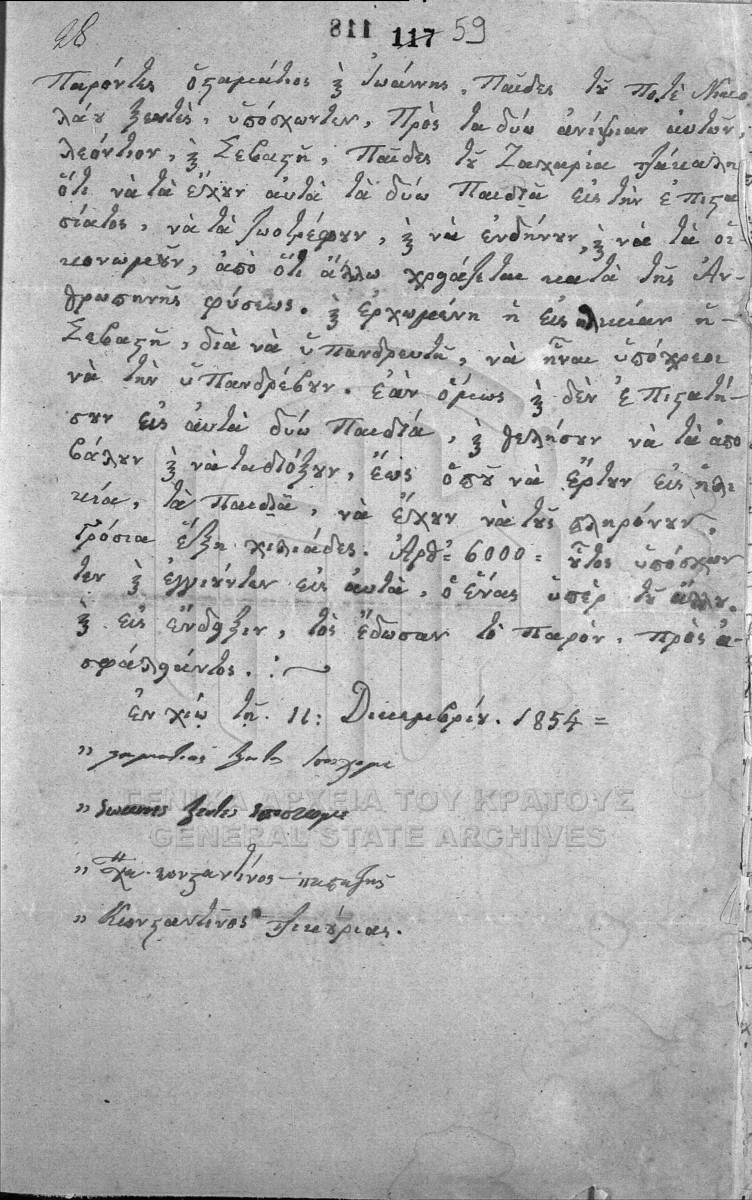 28 118 117 59
Παρόντες ὁ Σταμάτιος ϗ Ἰωάννης, Παῖδες τοῦ Ποτὲ Νικο
λάου Ξεντές, ὑπόσχωνται, Πρὸς τα δύω ἀνίψιαν αὐτῶν,
λεόντιον, ϗ Σεβαστῆ, Παῖδες τοῦ Ζαχαρία
ὅτι νὰ τὰ εἴχουν αὐτὰ τὰ δύω Παιδιᾶ εἰς τὴν ἐπιστα
σίατος, νὰ τὰ ζωοτρέφουν, ϗ νὰ ἐνδήνουν, ϗ νὰ τὰ οἰ-
κονωμοῦν, ἀπὸ ὅτι ἄλλο χρϊάζεται κατὰ τῆς Ἀν-
θρωπηνῆς φύσεως. ϗ ἐρχωμένη ἡ εἰς ηλικίαν ἡ-
Σεβαστῆ, διὰ νὰ ὑπανδρευτῆ, νὰ ἦναι ὑπόχρεοι
νὰ τὴν ὑπανδρέβουν. ἐὰν ὅμως ϗ δὲν ἐπιστατή-
σουν εἰς αὐτὰ δύω Παιδιά, ϗ θελήσουν νὰ τὰ ἀπο
βάλουν ϗ νὰ τα διόξουν, ἕως ὁποῦ νὰ ἔρτουν εἰς ἡλι
κία, τὰ Παιδιᾶ, νὰ εἴχουν νὰ τοὺς πληρόνουν,
Γρόσια ἕξη χιλιάδες. Ἀρθ= 6000 = οὕτος ὑπόσχων
ται ϗ ἐγγιούνται εἰς αὐτὰ, ὁ ἕνας ὑπὲρ τοῦ ἄλλου.
ϗ εἰς ἔνδηξιν, τὸς ἔδωσαν τὸ παρὸν, πρὸς ἀ-
σφάλειάντος. :~
ἐν χίῳ τῇ. 11: Δικεμβρίου. 1854 =
" σταματιος ξεντες ϊποσχομε
" Ιωαννης ξεντες ηποσχομε
" κονσταντίνος
" Κωνσταντῖνος
ΓΕΝΙΚΑ ΑΡΧΕΙΑ ΤΟΥ ΚΡΑΤΟΥΣ
GENERAL STATE ARCHIVES